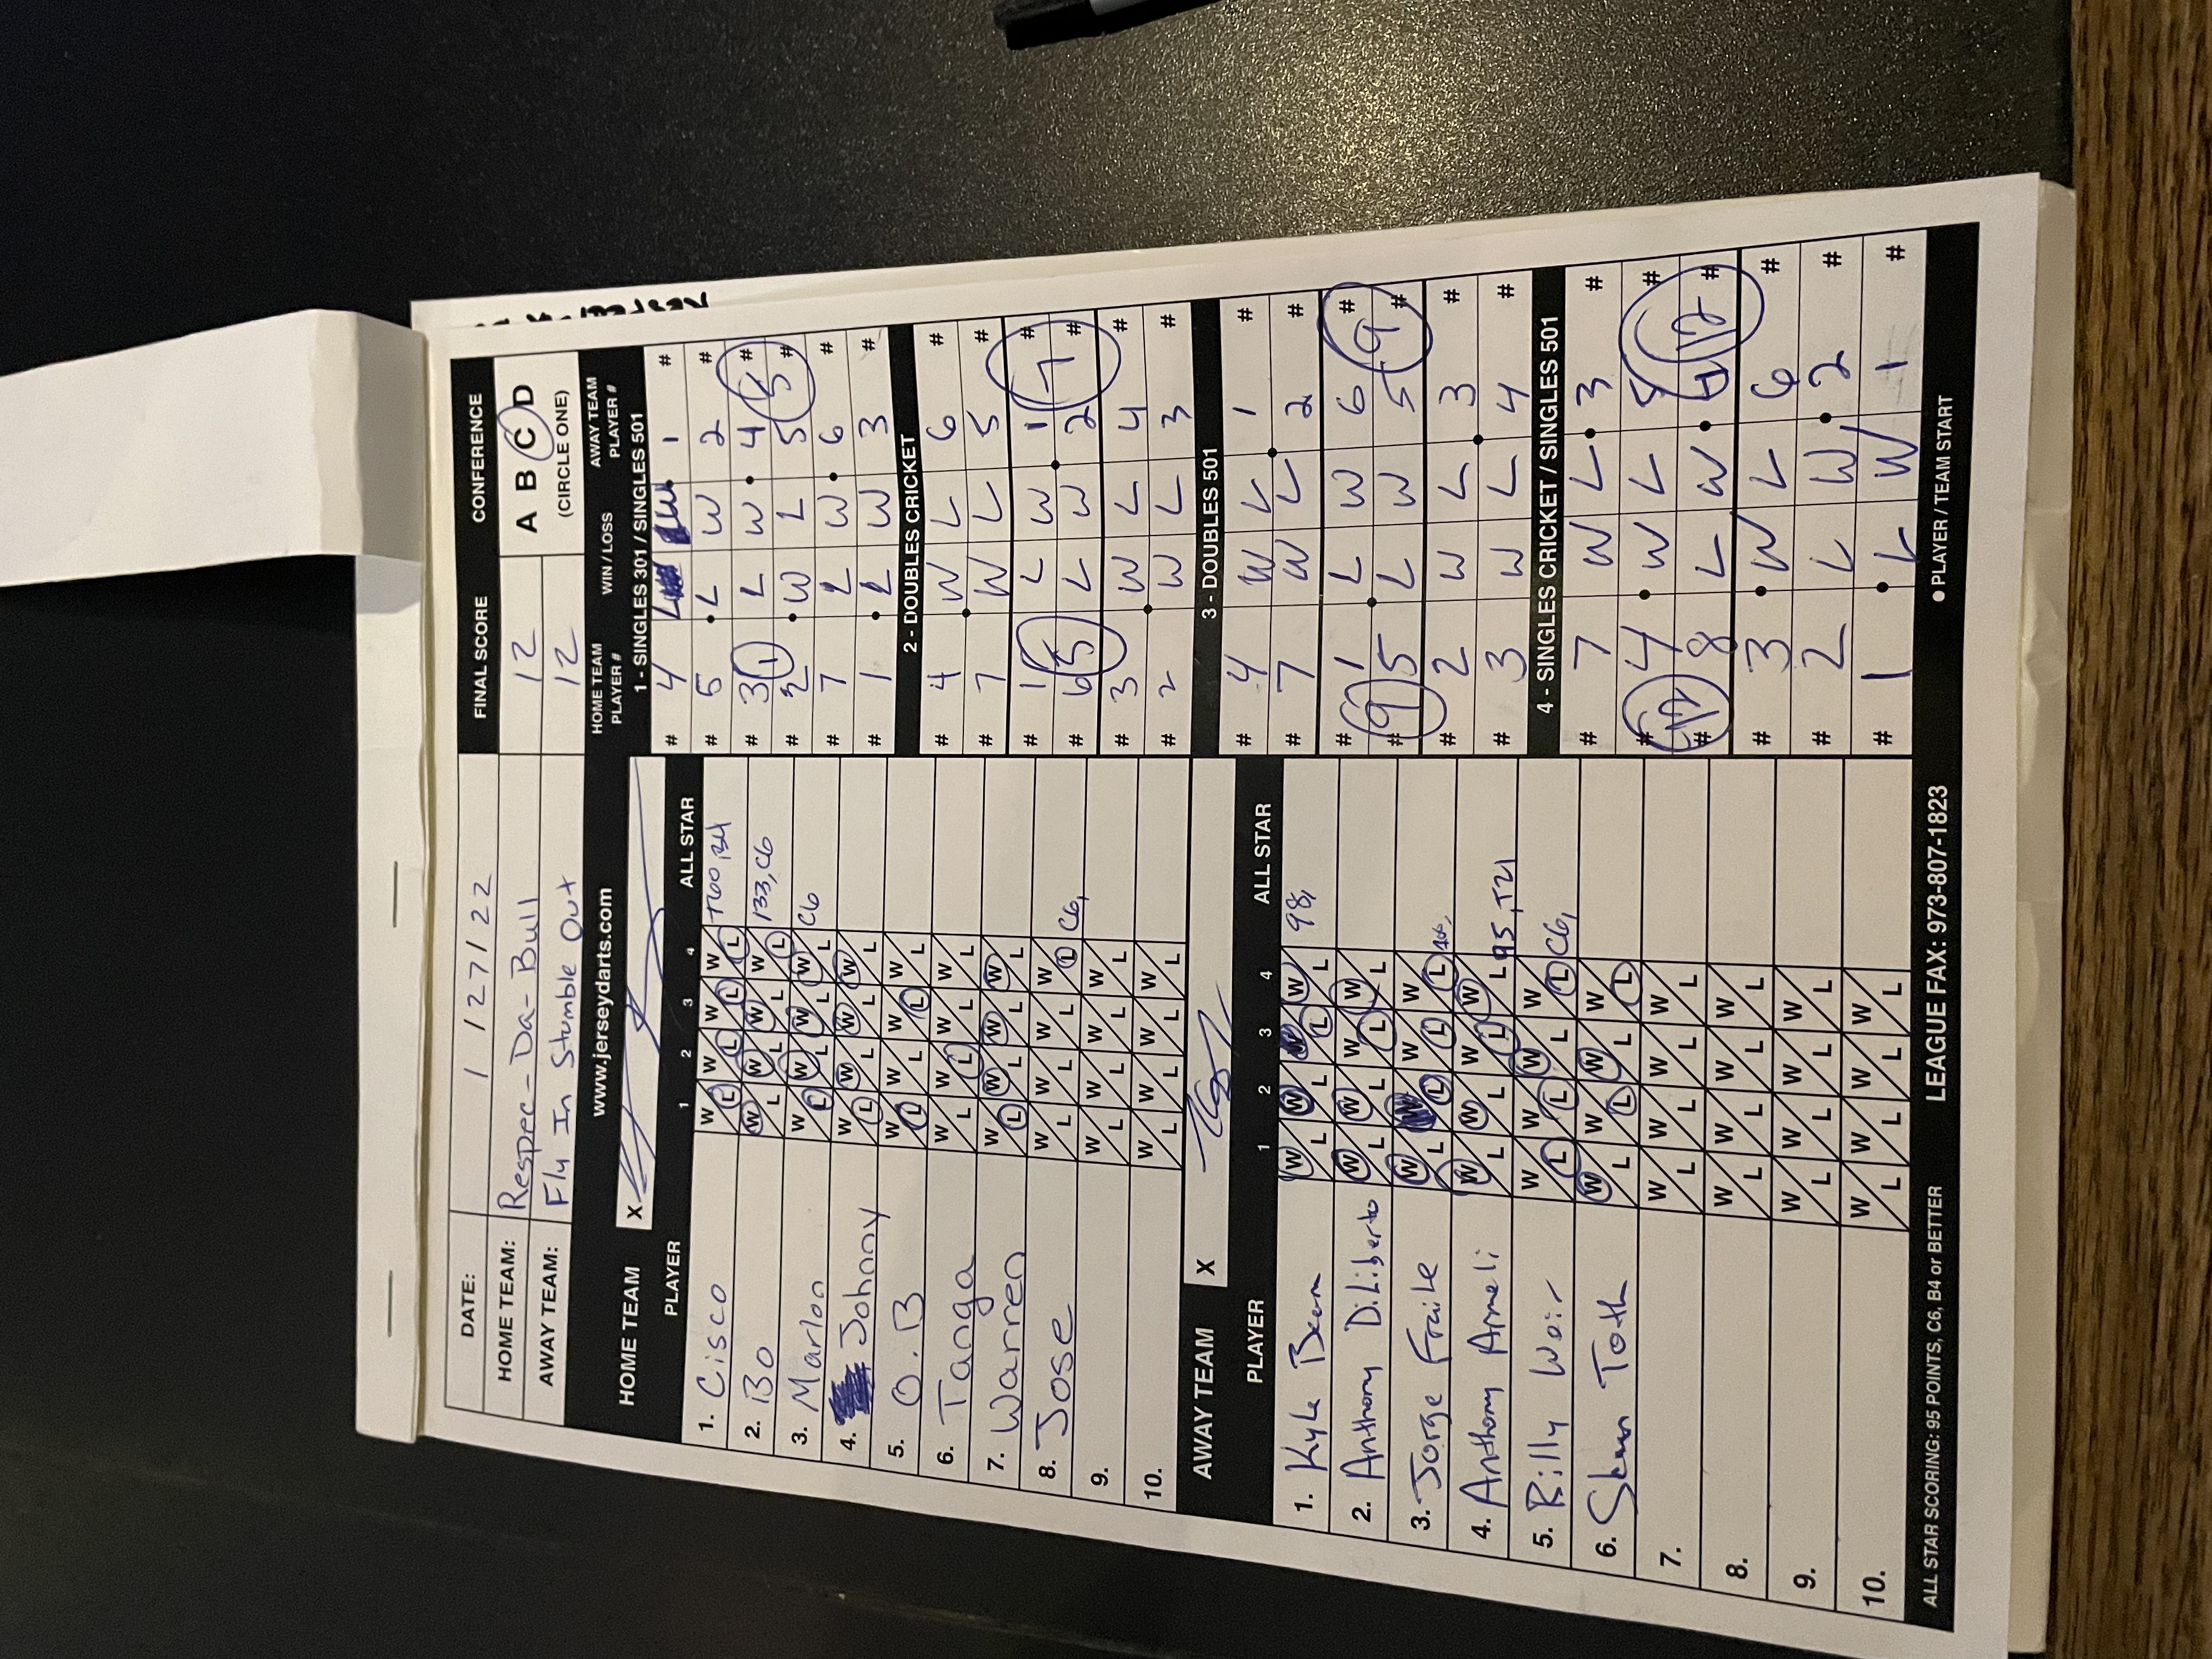 DATE: 1 / 27 / 22 FINAL SCORE CONFERENCE
HOME TEAM: Respec-Da-Bull 12 A B C D
AWAY TEAM: Fly In Stumble Out 12 (CIRCLE ONE)
www.jerseydarts.com
HOME TEAM X
PLAYER 1 2 3 4 ALL STAR
1. Cisco W L W L W L W L
2. Bo W L W L W L W L 133, C6
3. Marlon W L W L W L W L C6
4. Johnny W L W L W L W L
5. O.B W L W L W L W L
6. Tanga W L W L W L W L
7. Warren W L W L W L W L
8. Jose W L W L W L W L C6,
9. W L W L W L W L
10. W L W L W L W L
AWAY TEAM X
PLAYER 1 2 3 4 ALL STAR
1. Kyle W L W L W L W L 98,
2. Anthony DiLiberto W L W L W L W L
3. Jorge Fraile W L W L W L W L
4. Anthony Armeli W L W L W L W L 95, T21
5. Billy Weir W L W L W L W L C6,
6. Toth W L W L W L W L
7. W L W L W L W L
8. W L W L W L W L
9. W L W L W L W L
10. W L W L W L W L
HOME TEAM PLAYER # WIN / LOSS AWAY TEAM PLAYER #
1 - SINGLES 301 / SINGLES 501
# 4 L W 1 #
# 5 L W 2 #
# 3 L W 4 #
1 5
# 2 W L 5 #
# 7 L W 6 #
# 1 L W 3 #
2 - DOUBLES CRICKET
# 4 W L 6 #
# 7 W L 5 #
# 1 L W 1 #
5 7
# 6 L W 2 #
# 3 W L 4 #
# 2 W L 3 #
3 - DOUBLES 501
# 4 W L 1 #
# 7 W L 2 #
# 1 L W 6 #
9 9
# 5 L W 5 #
# 2 W L 3 #
# 3 W L 4 #
4 - SINGLES CRICKET / SINGLES 501
# 7 W L 3 #
# 4 W L 5 #
12 12
# 8 L W 4 #
# 3 W L 6 #
# 2 L W 2 #
# 1 L W 1 #
ALL STAR SCORING: 95 POINTS, C6, B4 or BETTER LEAGUE FAX: 973-807-1823 ● PLAYER / TEAM START